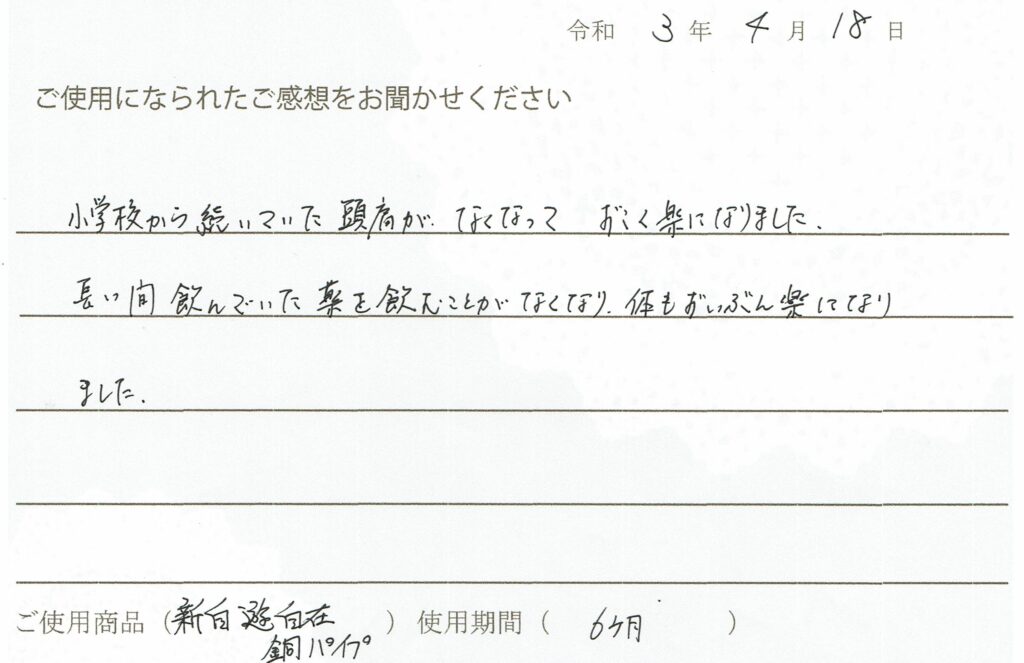 令和 3 年 4 月 18 日
ご使用になられたご感想をお聞かせください
小学校から続いていた頭痛が なくなって すごく楽になりました.
長い間 飲んでいた薬を飲むことがなくなり. 体もずいぶん楽になり
ました.
ご使用商品（新自遊自在 銅パイプ）使用期間（ 6ヶ月 ）